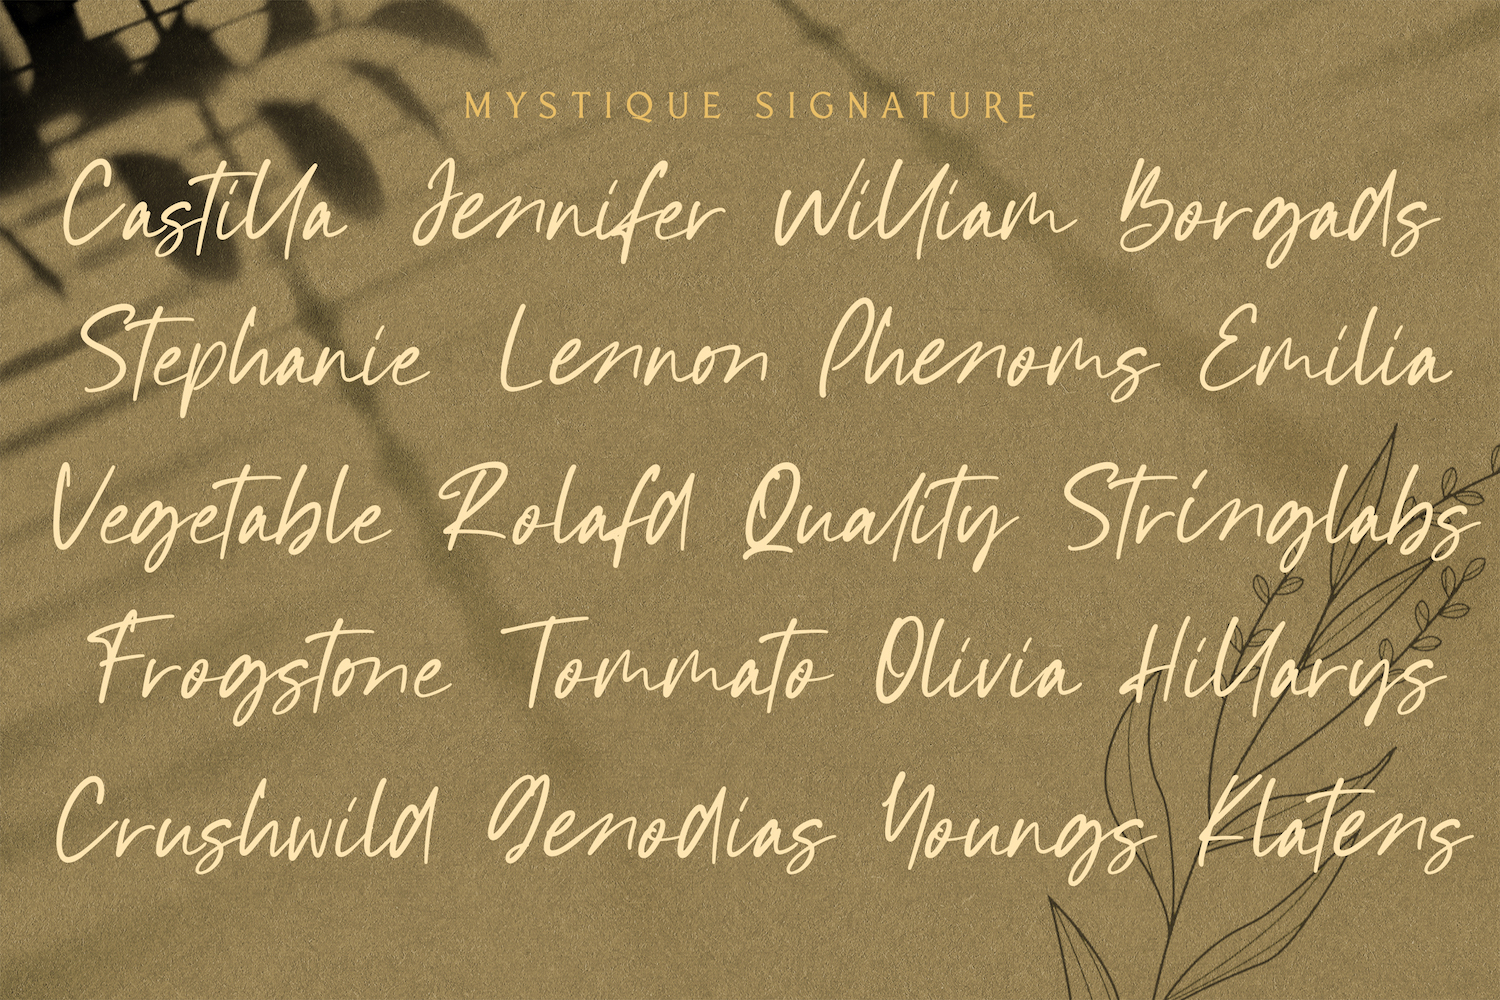 MYSTIQUE SIGNATURE
Castilla Jennifer William Borgads
Stephanie Lennon Phenoms Emilia
Vegetable Rolafd Quality Stringlabs
Frogstone Tommato Olivia Hillarys
Crushwild Genodias Youngs Klatens